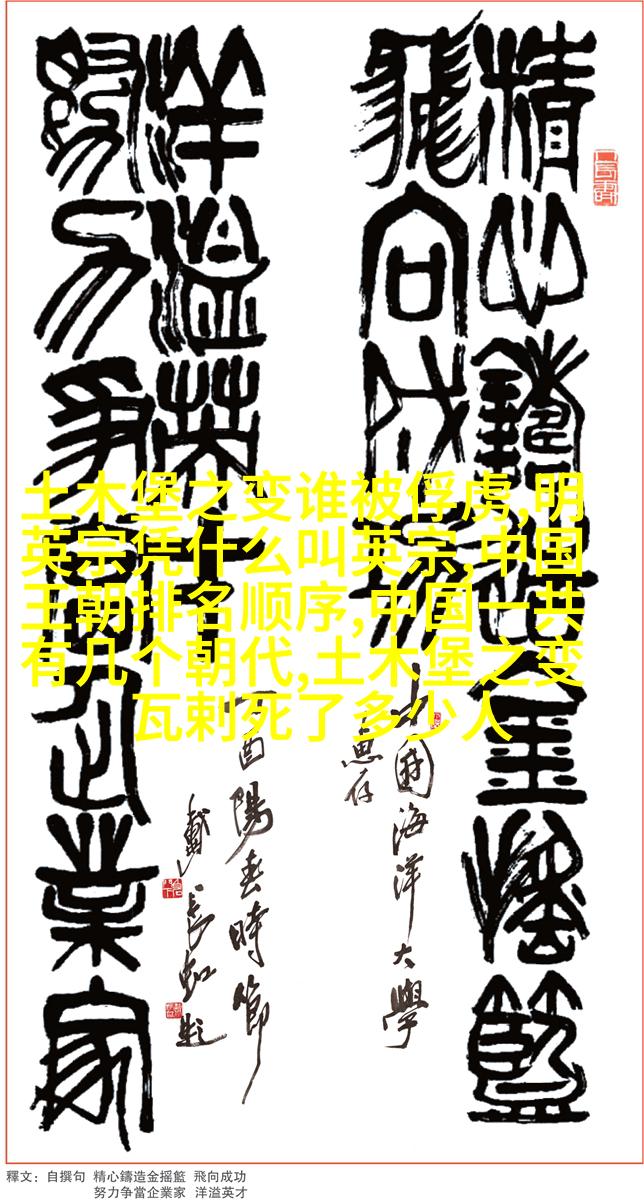 精心鑄造金摇籃
飛向成功
中國海洋大學
惠存
努力争當企業家
洋溢英才
丁酉陽春時節
戴長虹題
土木堡之变谁被俘虏,明
英宗凭什么叫英宗,中国
王朝排名顺序,中国一共
有几个朝代,土木堡之变
瓦剌死了多少人
釋文：自撰句 精心鑄造金摇籃 飛向成功
努力争當企業家 洋溢英才